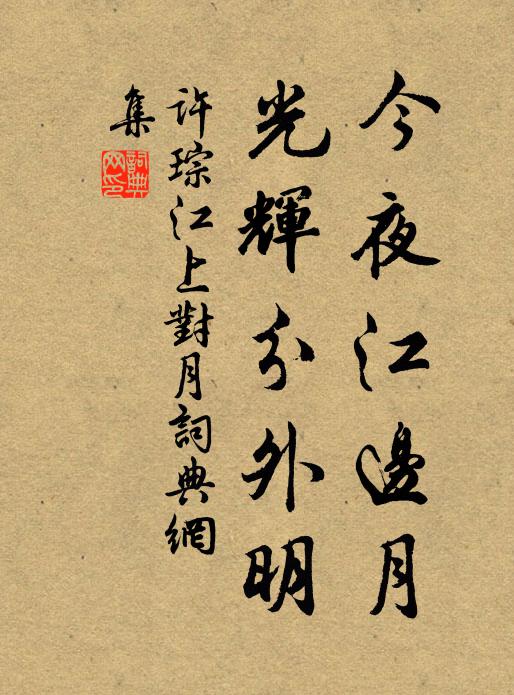 今夜江邊月
光輝分外明
許琮江上對月詞典網
集
詞典
網印